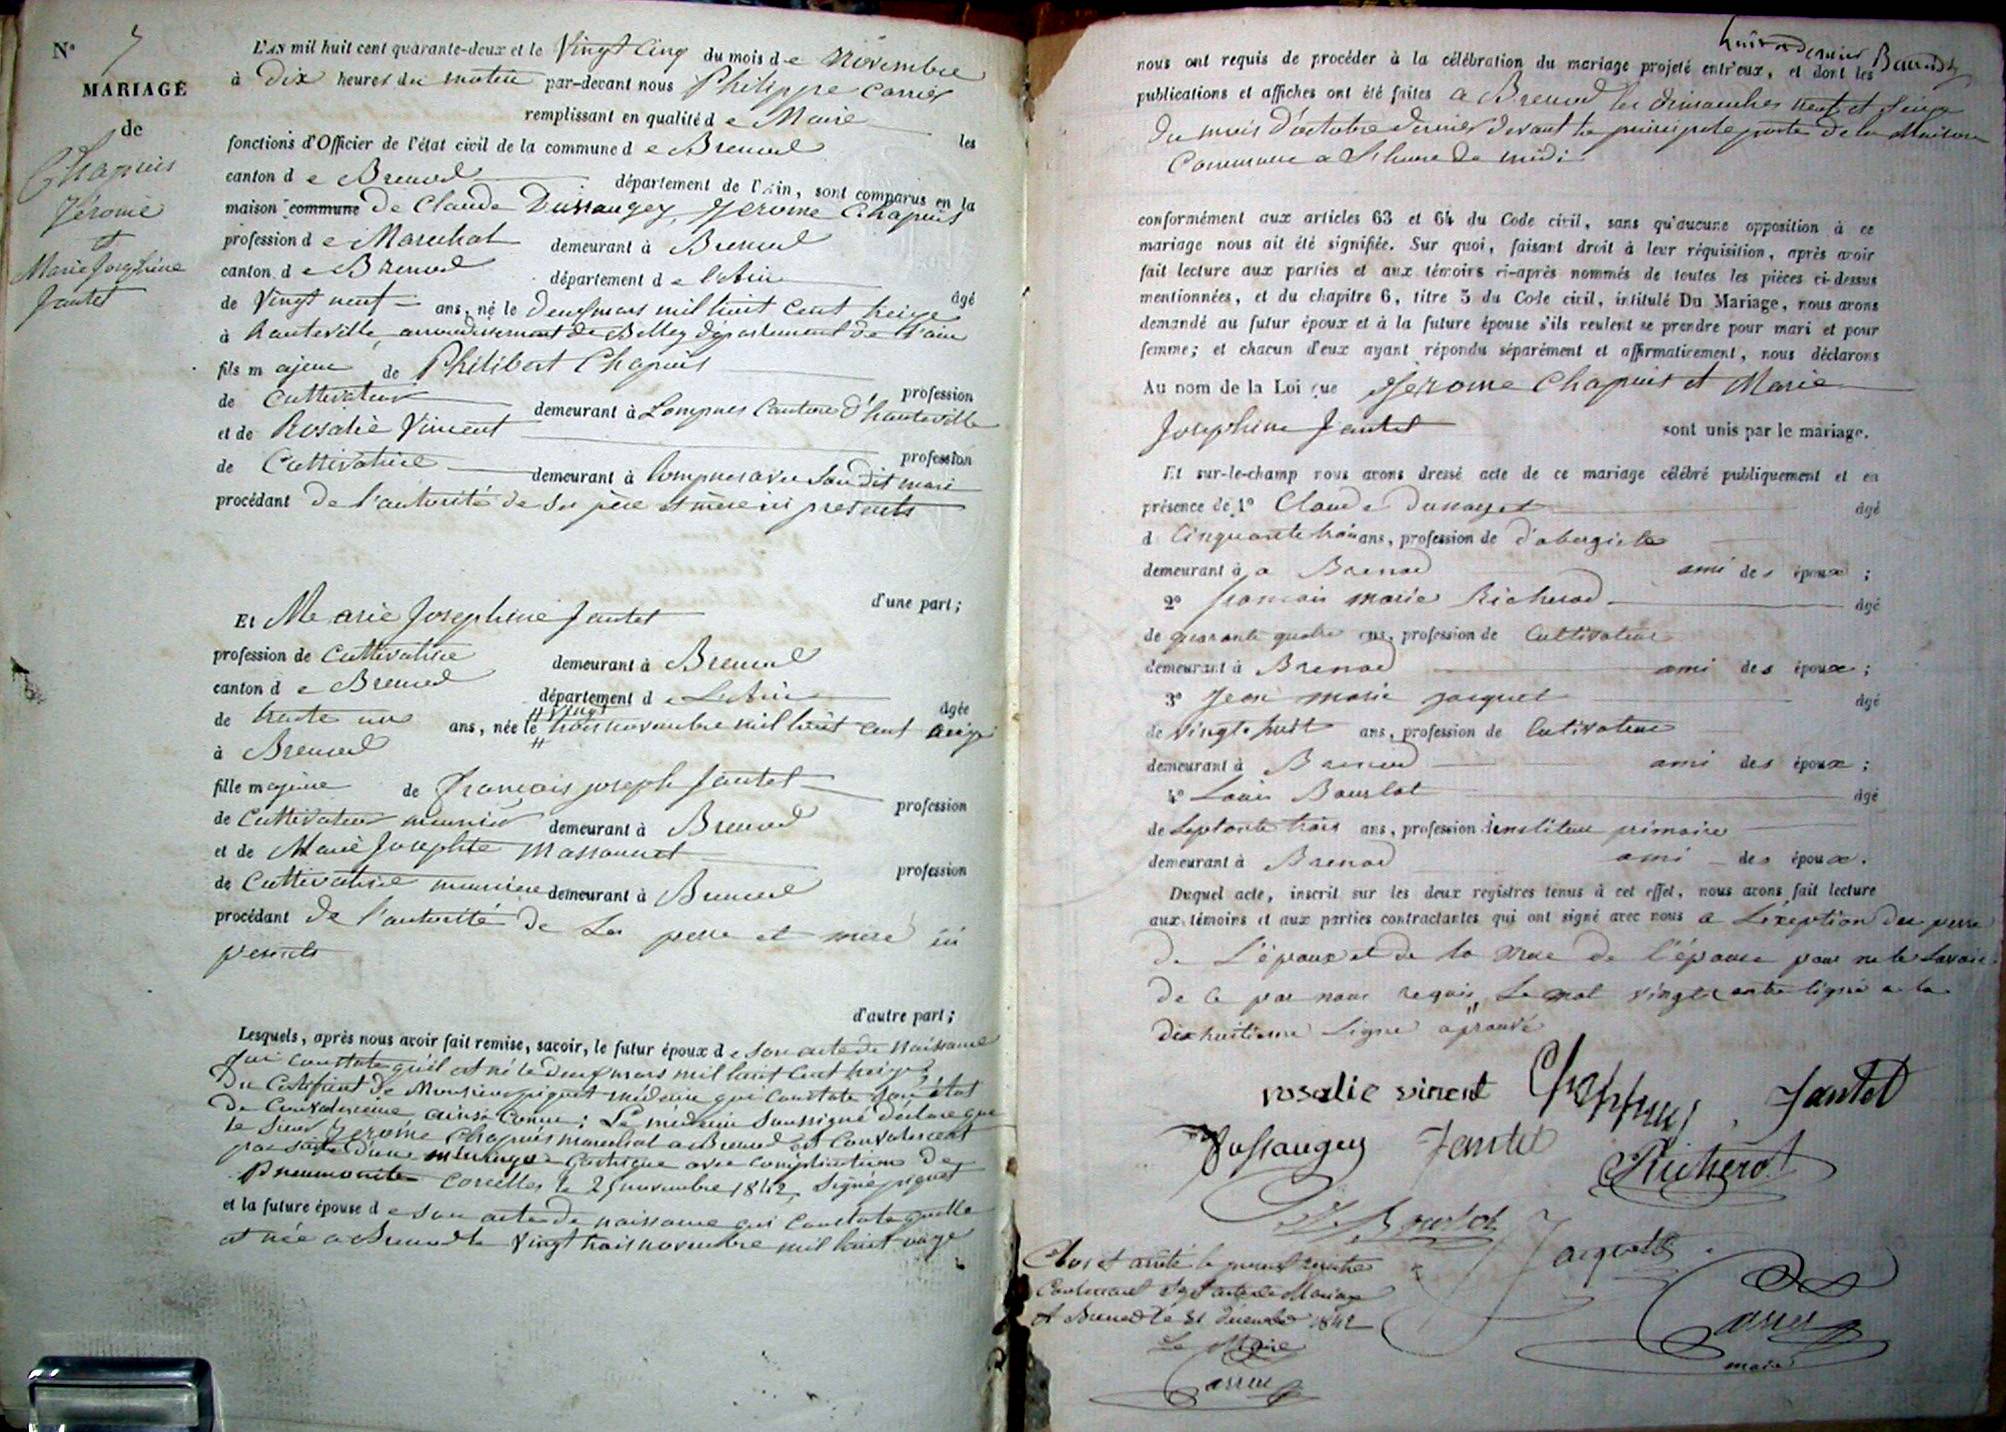 N° 7
MARIAGE
de
Chapuis
Jérome
et
Marie Josephine
Jantet
L'AN mil huit cent quarante-deux et le Vingt Cinq du mois de novembre
à Dix heures du matin par-devant nous Philippe Carrier
remplissant en qualité de Maire les
fonctions d'Officier de l'état civil de la commune de Brenod
canton de Brenod département de l'Ain, sont comparus en la
maison commune de Claude Dussaugey, Jerome Chapuis
profession de Marechal demeurant à Brenod
canton de Brenod département de l'Ain âgé
de Vingt neuf ans, né le Deux mars mil huit cent treize
à hauteville, arrondissement de Belley département de l'ain
fils majeur de Philibert Chapuis profession
de Cultivateur demeurant à Lompnes Canton d'hauteville
et de Rosalie Vincent profession
de Cultivatrice demeurant à lompnes avec Son dit mari
procédant de l'autorité de Ses père et mère ici présents
d'une part;
Et Marie Josephine Jantet
profession de Cultivatrice demeurant à Brenod
canton de Brenod département de L'Ain âgée
de trente un ans, née le vingt trois novembre mil huit cent onze
à Brenod
fille majeure de François joseph Jantet profession
de Cultivateur meunier demeurant à Brenod
et de Marie Josephte Massonnet profession
de Cultivatrice meuniere demeurant à Brenod
procédant de l'autorité de Ses pere et mère ici
présents
d'autre part;
Lesquels, après nous avoir fait remise, savoir, le futur époux de Son acte de Naissance
qui constate qu'il est né le deux mars mil huit cent treize,
Du Certificat de Monsieur piguet médecin qui Constate Son état
de Convalescence ainsi Conçu: Le médecin Soussigné déclare que
le Sieur Jerome Chapuis marechal a Brenod est Convalescent
par Suite d'une Gastrique avec complication de
Pneumonite Corcelles le 25 novembre 1842 Signé piguet
et la future épouse de Son acte de naissance qui Constate quelle
est née a Brenod le Vingt trois novembre mil huit onze
huit dernier
nous ont requis de procéder à la célébration du mariage projeté entr'eux, et dont les
publications et affiches ont été faites a Brenod les dimanches neuf et Seize
Du mois d'octobre dernier devant la principale porte de la Maison
Commune a L'heure de midi
conformément aux articles 63 et 64 du Code civil, sans qu'aucune opposition à ce
mariage nous ait été signifiée. Sur quoi, faisant droit à leur réquisition, après avoir
fait lecture aux parties et aux témoins ci-après nommés de toutes les pièces ci-dessus
mentionnées, et du chapitre 6, titre 5 du Code civil, intitulé Du Mariage, nous avons
demandé au futur époux et à la future épouse s'ils veulent se prendre pour mari et pour
femme; et chacun d'eux ayant répondu séparément et affirmativement, nous déclarons
Au nom de la Loi que Jerome Chapuis et Marie
Josephine Jantet sont unis par le mariage.
Et sur-le-champ nous avons dressé acte de ce mariage célébré publiquement et en
présence de 1° Claude Dussaugey âgé
d Cinquante trois ans, profession de d'abergiste
demeurant à a Brenod ami des époux;
2° francois marie Richerod âgé
de quarante quatre ans, profession de Cultivateur
demeurant à Brenod ami des époux;
3° Jean marie Jacquet âgé
de Vingt huit ans, profession de Cultivateur
demeurant à Brenod ami des époux;
4° Louis Bourlot âgé
de Septante trois ans, profession d'instituteur primaire
demeurant à Brenod ami des époux.
Duquel acte, inscrit sur les deux registres tenus à cet effet, nous avons fait lecture
aux témoins et aux parties contractantes qui ont signé avec nous a L'éxeption du pere
De L'époux et de la mere de l'épouse pour ne le Savoir
De Ce par nous requis, Le mot vingt entre ligné a la
dix huitieme Ligne aprouvé
rosalie vincent Chappuis Jantet
Dussaugey Jantet Richerot
L. Bourlot
Jacquet
Clos et arrêté le présent registre
Contenant Sept actes de Mariage
A Brenod le 31 décembre 1842
Le Maire
Carrier
Carrier
maire